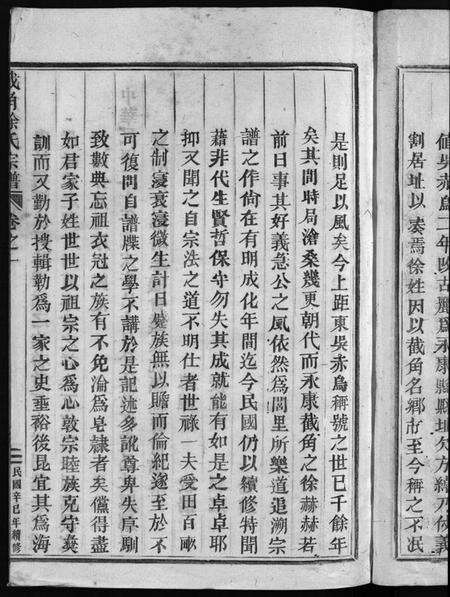 値吳赤烏二年改古麗爲永康縣縣址欠方紳乃仗義
割居址以 焉徐姓因以截角名鄉市至今稱之不泯
是則足以風矣今上距東吳赤烏稱號之世已千餘年
矣其間時局滄桑幾更朝代而永康截角之徐赫赫若
前日事其好義急公之風依然爲閭里所樂道追溯宗
譜之作尙在有明成化年間迄今民國仍以續修特聞
藉非代生賢哲保守勿失其成就能有如是之卓卓耶
抑又聞之自宗法之道不明仕者世祿一夫受田百畝
之制寖衰寖微生計日 族無以贍而倫紀遂至於不
可復問自譜牒之學不講於是記述多訛尊卑失序馴
致數典忘祖衣冠之族有不免淪爲皂隸者矣儻得盡
如君家子姓世世以祖宗之心爲心敦宗睦族克守彝
訓而又勤於搜輯勒爲一家之史垂裕後昆宜其爲海
截角徐氏宗譜 卷之一
民國辛巳年續修